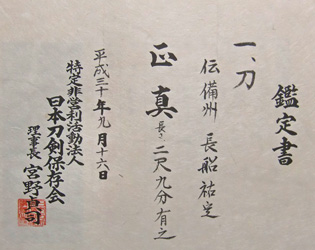 鑑定書
一、刀
伝備州 長船祐定
正真 長さ 二尺九分有之
平成三十年九月十六日
特定非営利活動法人
日本刀剣保存会
理事長 宮野貞司